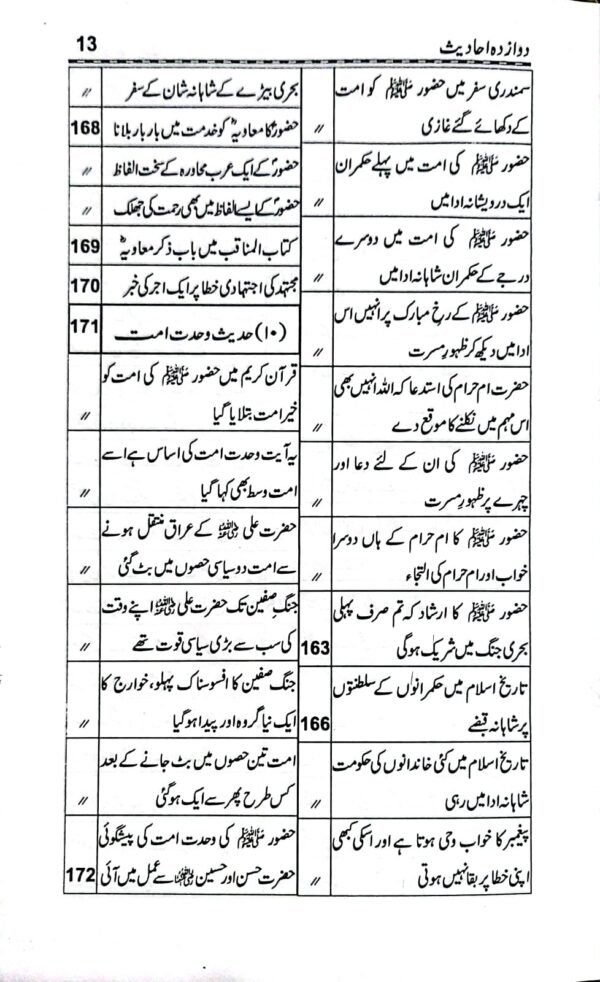 دوازدہ احادیث
13
سمندری سفر میں حضور ﷺ کو امت
کے دکھائے گئے غازی
〃
حضور ﷺ کی امت میں پہلے حکمران
ایک درویشانہ ادا میں
〃
حضور ﷺ کی امت میں دوسرے
درجے کے حکمران شاہانہ ادا میں
〃
حضور ﷺ کے رخِ مبارک پر انہیں اس
ادا میں دیکھ کر ظہورِ مسرت
〃
حضرت ام حرام کی استدعا کہ اللہ انہیں بھی
اس مہم میں نکلنے کا موقع دے
〃
حضور ﷺ کی ان کے لئے دعا اور
چہرے پر ظہورِ مسرت
〃
حضور ﷺ کا ام حرام کے ہاں دوسرا
خواب اور ام حرام کی التجاء
〃
حضور ﷺ کا ارشاد کہ تم صرف پہلی
بحری جنگ میں شریک ہوگی
163
تاریخ اسلام میں حکمرانوں کے سلطنتوں
پر شاہانہ قبضے
166
تاریخ اسلام میں کئی خاندانوں کی حکومت
شاہانہ ادا میں رہی
〃
پیغمبر کا خواب وحی ہوتا ہے اور اسکی کبھی
اپنی خطا پر بقا نہیں ہوتی
〃
بحری بیڑے کے شاہانہ شان کے سفر
〃
حضورؐ کا معاویہؓ کو خدمت میں بار بار بلانا
168
حضورؐ کے ایک عرب محاورہ کے سخت الفاظ
〃
حضورؐ کے ایسے الفاظ میں بھی رحمت کی جھلک
〃
کتاب المناقب میں باب ذکر معاویہؓ
169
مجتہد کی اجتہادی خطا پر ایک اجر کی خبر
170
(۱۰) حدیث وحدت امت
171
قرآن کریم میں حضور ﷺ کی امت کو
خیر امت بتلایا گیا
〃
یہ آیت وحدت امت کی اساس ہے اسے
امت وسط بھی کہا گیا
〃
حضرت علی رضی اللہ عنہ کے عراق منتقل ہونے
سے امت دو سیاسی حصوں میں بٹ گئی
〃
جنگِ صفین تک حضرت علی رضی اللہ عنہ اپنے وقت
کی سب سے بڑی سیاسی قوت تھے
〃
جنگ صفین کا افسوسناک پہلو، خوارج کا
ایک نیا گروہ اور پیدا ہوگیا
〃
امت تین حصوں میں بٹ جانے کے بعد
کس طرح پھر سے ایک ہوگئی
〃
حضور ﷺ کی وحدت امت کی پیشگوئی
حضرت حسن اور حسین رضی اللہ عنہما سے عمل میں آئی
172